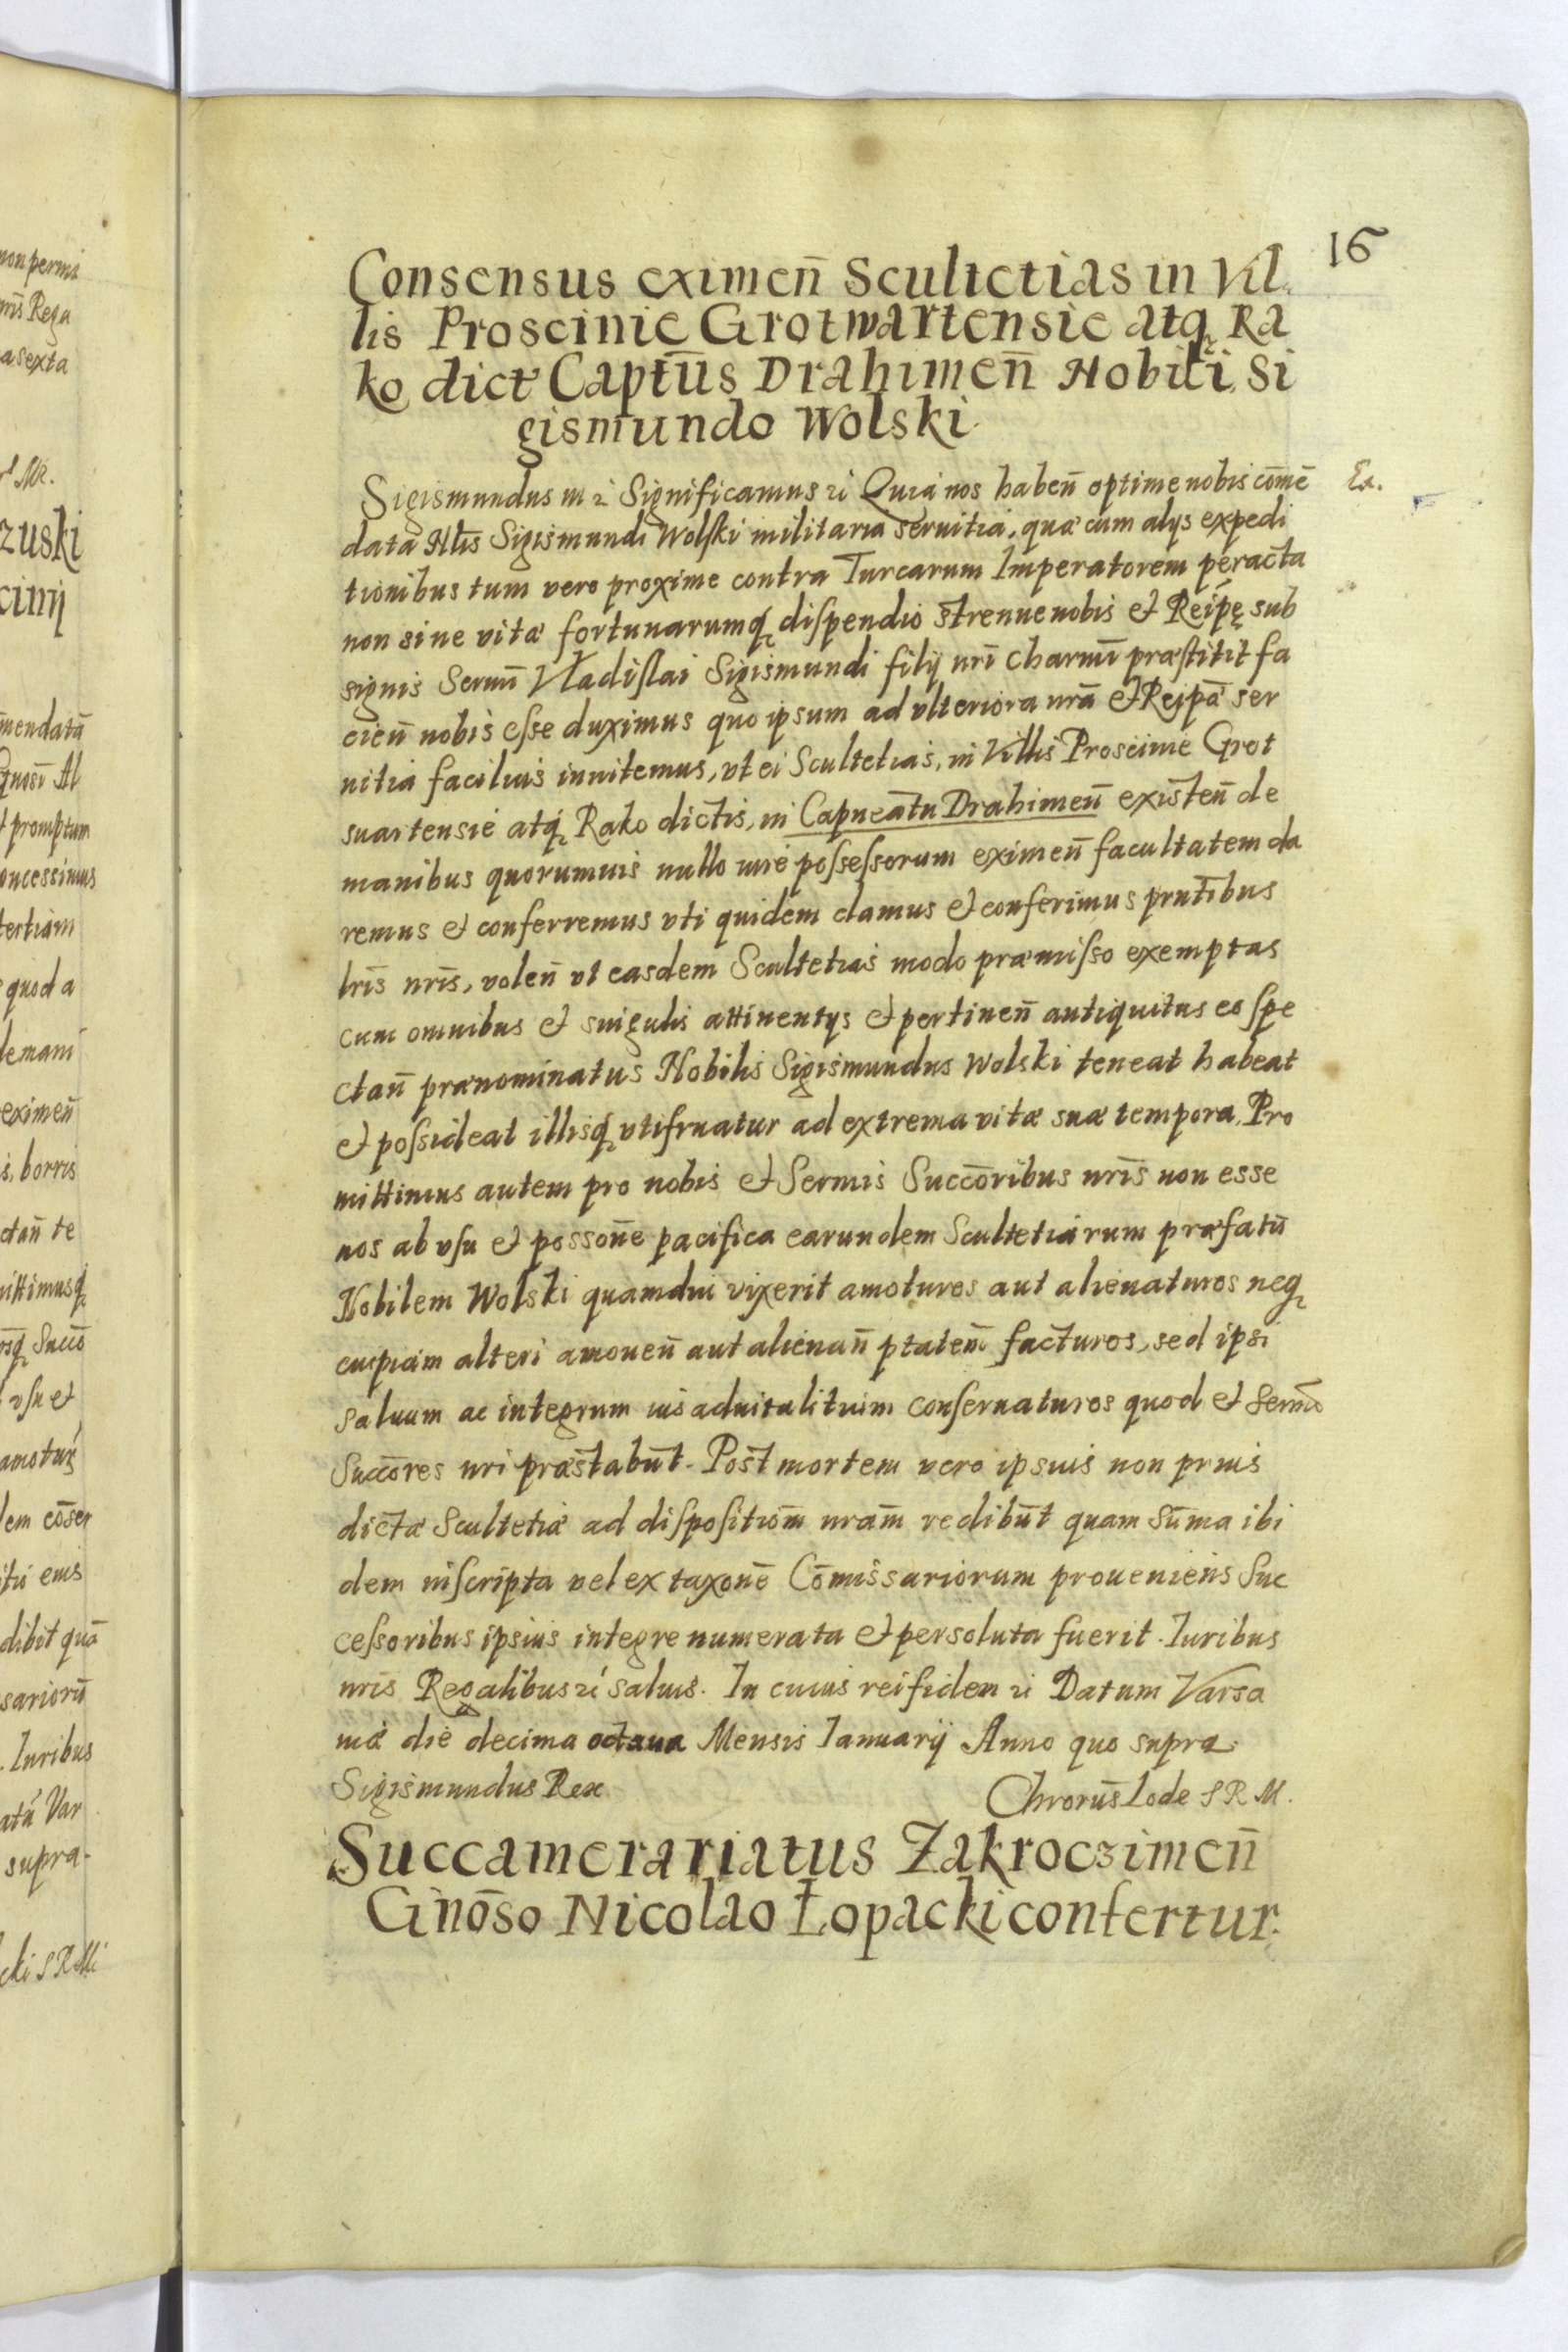 16
Consensus eximen̄ Scultetias in Vil
lis Proscinie Grotwartensie atq̨ Ra
ko dict Captūs Drahimen̄ Nobili Si
gismundo Wolski
Sigismundus III Significamus Quia nos haben̄ optime nobis com̄e
Ex.
data Nlis Sigismundi Wolski militaria seruitia, quæ cum alys expedi
tionibus tum vero proxime contra Turcarum Imperatorem peracta
non sine vitæ fortunarumq̨ dispendio strenue nobis et Reipę sub
signis Sermi Vladislai Sigismundi filij nr̄i charmi præstitit fa
cien̄ nobis esse duximus quo ipsum ad vlteriora nr̄a et Reipā ser
uitia facilius inuitemus, vt ei Scultetias, in Villis Proscinie Grot
suartensie atq̨ Rako dictis, in Capneatu Drahimen̄ existen̄ de
manibus quorumuis nullo iure possessorum eximen̄ facultatem da
remus et conferremus vti quidem damus et conferimus prntibus
lr̄is nr̄is, volen̄ vt easdem Scultetias modo præmisso exemptas
cum omnibus et singulis attinentys et pertinen̄ antiquitus eo spe
ctan̄ prænominatus Nobilis Sigismundus Wolski teneat habeat
et possideat illisq̨ vtifruatur ad extrema vitæ suæ tempora. Pro
mittimus autem pro nobis et Sermis Succ̄oribus nr̄is non esse
nos ab vsu et posson̄e pacifica earundem Scultetiarum præfatū
Nobilem Wolski quamdiu vixerit amoturos aut alienaturos neq̨
cuipiam alteri amouen̄ aut alienan̄ ptatem̄ facturos, sed ipsi
saluum ac integrum ius aduitalitium conseruaturos quod et Sermi
Succ̄ores nri præstabūt. Post mortem vero ipsius non prius
dictæ Scultetiæ ad dispositiom̄ nram̄ redibūt quam sūma ibi
dem inscripta vel ex taxone Com̄issariorum proueniens Suc
cessoribus ipsius integre numerata et persoluta fuerit. Iuribus
nr̄is Regalibus saluis. In cuius rei fidem Datum Varsa
uiæ die decima octaua Mensis Ianuarij Anno quo supra
Sigismundus Rex
Chrorus̄ Lode S R M.
Succamerariatus Zakroczimen̄
Gnōso Nicolao Łopacki confertur.